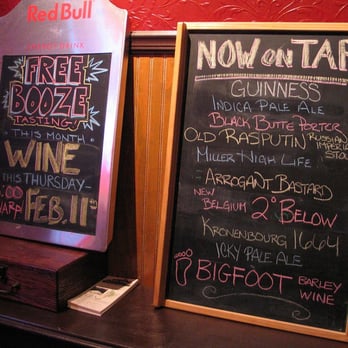 Red Bull
ENERGY DRINK
FREE
BOOZE
TASTING
THIS MONTH
WINE
THIS THURSDAY
:00
HARP
FEB. 11th
NOW ON TAP
GUINNESS
INDICA PALE ALE
BLACK BUTTE PORTER
OLD RASPUTIN RUSSIAN
IMPERIAL
STOU
MILLER HIGH LIFE
- ARROGANT BASTARD
NEW
BELGIUM 2° BELOW
KRONENBOURG 1664
ICKY PALE ALE
BIGFOOT BARLEY
WINE